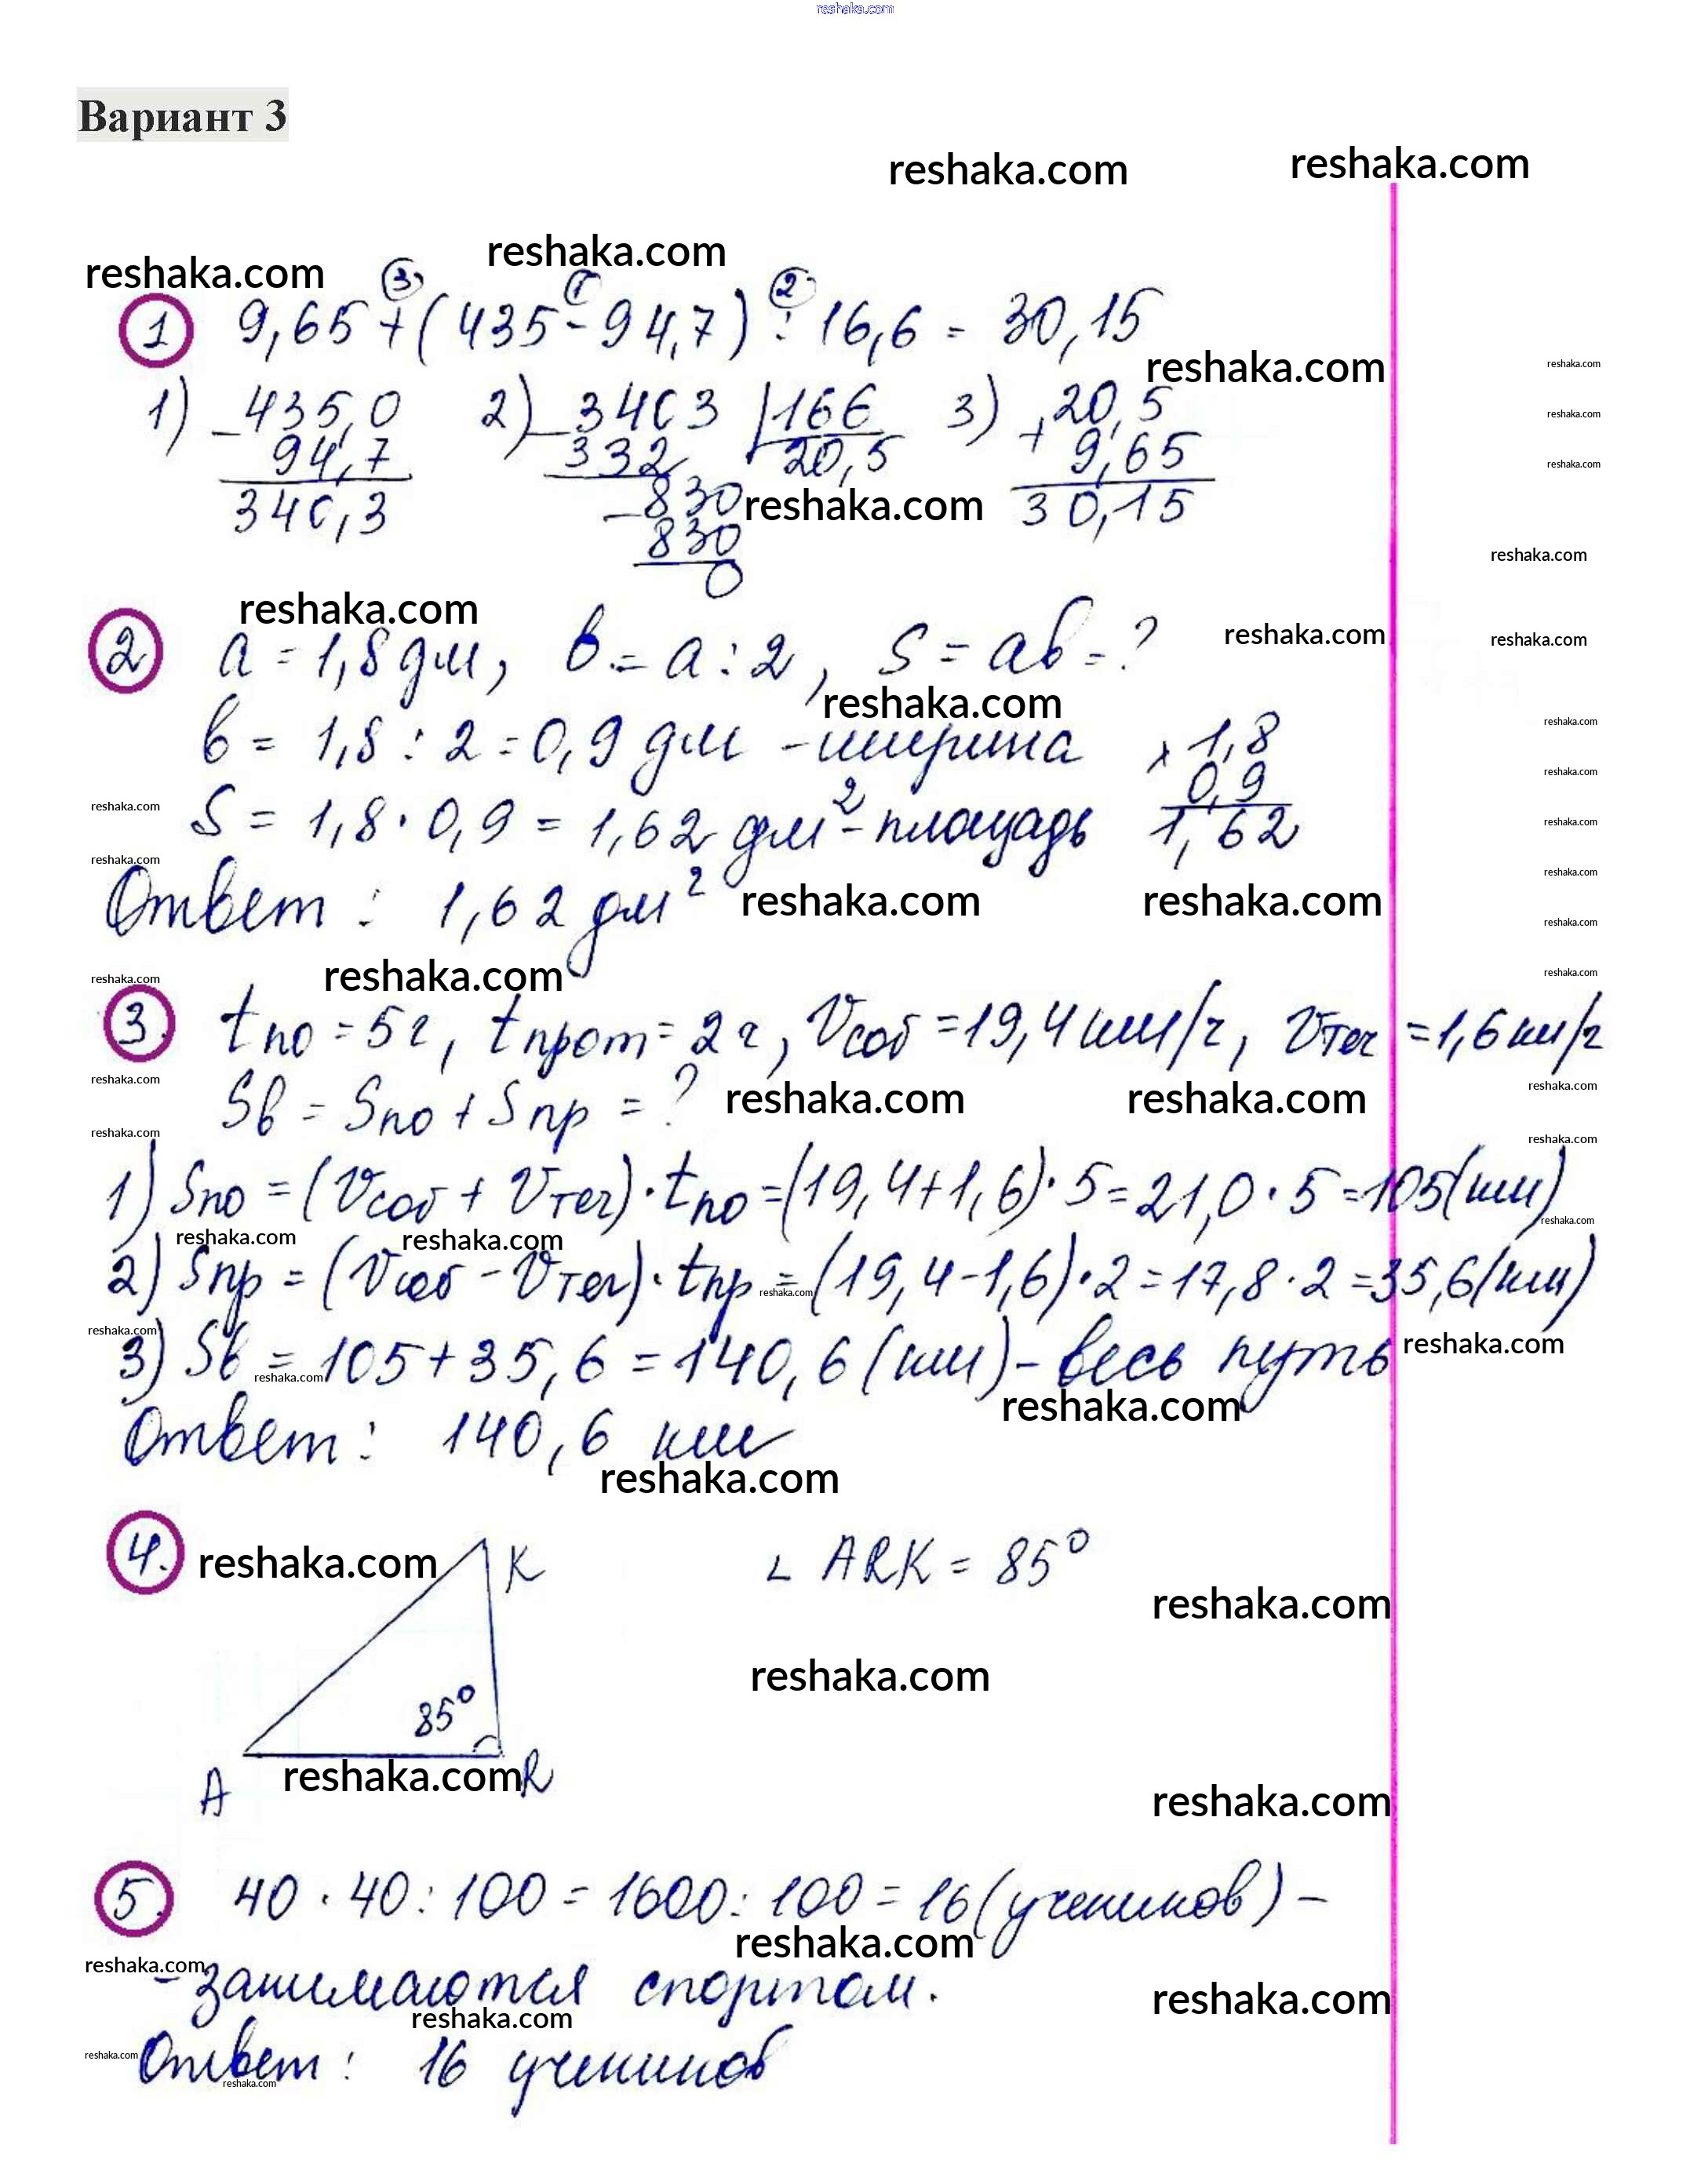 reshaka.com
Вариант 3
reshaka.com reshaka.com
reshaka.com reshaka.com
③ ① ②
1 9,65 + (435 - 94,7) : 16,6 = 30,15
reshaka.com reshaka.com
1) 435,0 2) 3403 |166 3) 20,5
reshaka.com
- 94,7 - 332 20,5 + 9,65
reshaka.com
340,3 - 830 reshaka.com 30,15
830
0
reshaka.com
reshaka.com
2 a = 1,8 дм, b = a : 2, S = ab = ?
reshaka.com reshaka.com
reshaka.com
reshaka.com
b = 1,8 : 2 = 0,9 дм - ширина × 1,8
reshaka.com
reshaka.com 0,9
S = 1,8 · 0,9 = 1,62 дм² - площадь 1,62
reshaka.com
reshaka.com reshaka.com
Ответ : 1,62 дм² reshaka.com reshaka.com
reshaka.com
reshaka.com reshaka.com reshaka.com
3. tпо = 5 ч, tпрот = 2 ч, Vсоб = 19,4 км/ч, Vтеч = 1,6 км/ч
reshaka.com reshaka.com
Sв = Sпо + Sпр = ? reshaka.com reshaka.com
reshaka.com reshaka.com
1) Sпо = (Vсоб + Vтеч) · tпо = (19,4 + 1,6) · 5 = 21,0 · 5 = 105 (км)
reshaka.com reshaka.com reshaka.com
2) Sпр = (Vсоб - Vтеч) · tпр = (19,4 - 1,6) · 2 = 17,8 · 2 = 35,6 (км)
reshaka.com
reshaka.com reshaka.com
3) Sв = 105 + 35,6 = 140,6 (км) - весь путь
reshaka.com reshaka.com
Ответ : 140,6 км
reshaka.com
4. reshaka.com K ∟ ARK = 85°
reshaka.com
reshaka.com
85°
A reshaka.com R
reshaka.com
5. 40 · 40 : 100 = 1600 : 100 = 16 (учеников) -
reshaka.com
reshaka.com
- занимаются спортом. reshaka.com
reshaka.com
reshaka.com Ответ : 16 учеников
reshaka.com